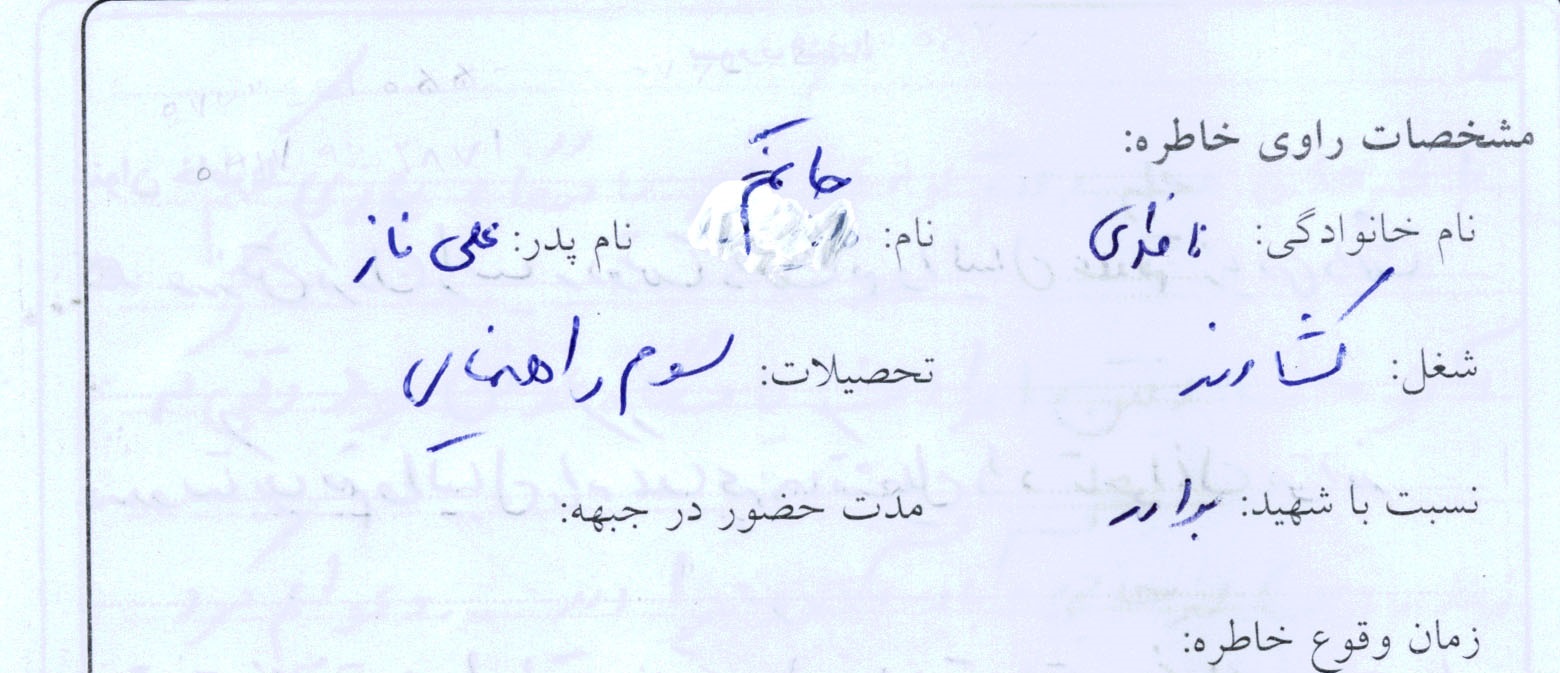 مشخصات راوی خاطره:
نام خانوادگی: نام: حاتم نام پدر: علی ناز
شغل: کشاورز تحصیلات: سوم راهنمایی
نسبت با شهید: برادر مدت حضور در جبهه:
زمان وقوع خاطره: